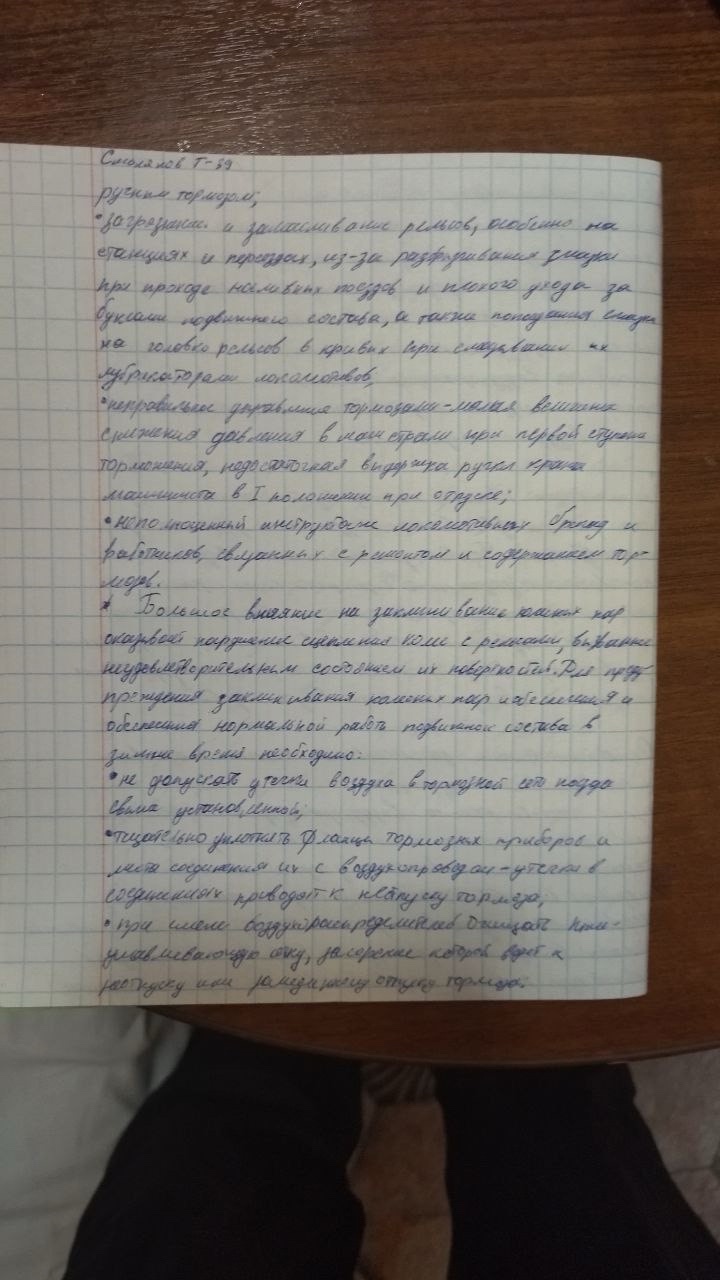 Смоляков Т-39
ручным тормозом;
• загрязнение и замасливание рельсов, особенно на
станциях и переездах, из-за разбрызгивания смазки
при проходе наливных поездов и плохого ухода за
буксами подвижного состава, а также попадания смазки
на головки рельсов в кривых при смазывании их
лубрикаторами локомотивов;
• неправильное управление тормозами - малая величина
снижения давления в магистрали при первой ступени
торможения, недостаточная выдержка ручки крана
машиниста в I положении при отпуске;
• неполноценный инструктаж локомотивных бригад и
работников, связанных с ремонтом и содержанием тор-
мозов.
Большое влияние на заклинивание колёсных пар
оказывает нарушение сцепления колес с рельсами, вызванное
неудовлетворительным состоянием их поверхностей. Для преду-
преждения заклинивания колесных пар и обеспечения и
обеспечения нормальной работы подвижного состава в
зимнее время необходимо:
• не допускать утечки воздуха в тормозной сети поезда
свыше установленной;
• тщательно уплотнить фланцы тормозных приборов и
места соединения их с воздухопроводом - утечки в
соединениях приводят к неотпуску тормоза;
• при смене воздухораспределителей очищать пыле-
улавливающую сетку, засорение которой ведет к
неотпуску или замедленному отпуску тормоза.